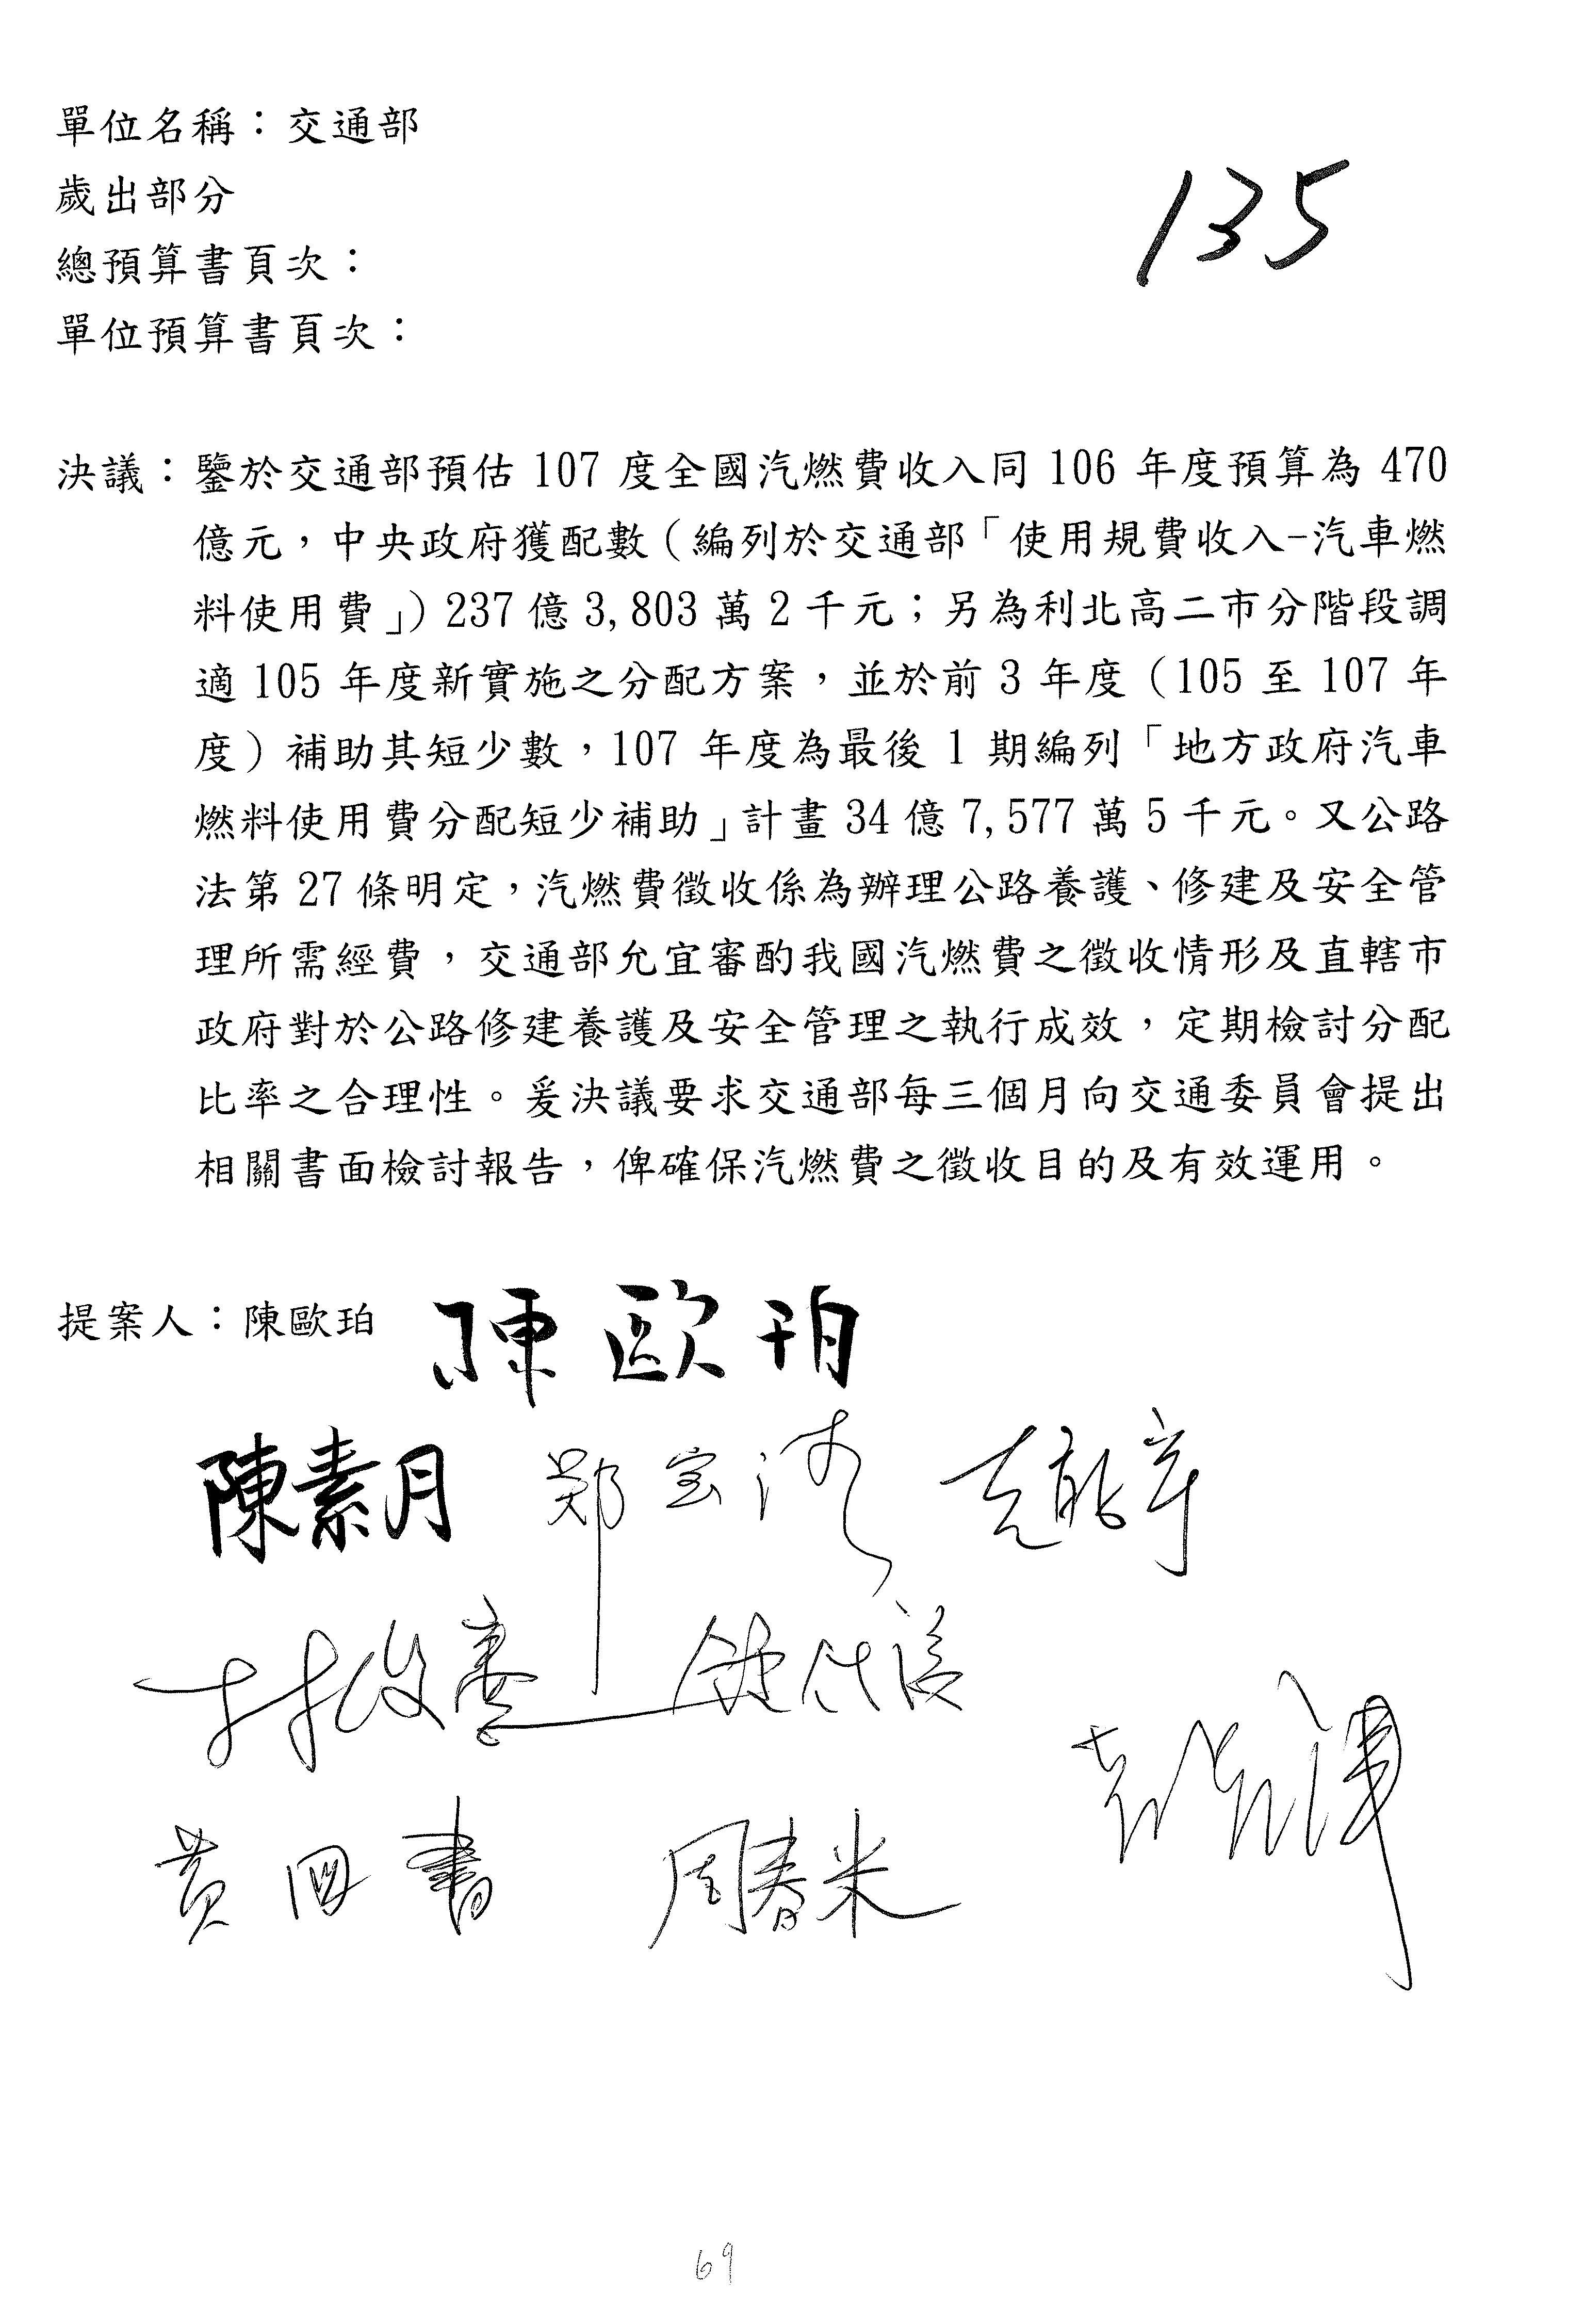 單位名稱：交通部
135
歲出部分
總預算書頁次：
單位預算書頁次：
決議：鑒於交通部預估 107 度全國汽燃費收入同 106 年度預算為 470
億元，中央政府獲配數（編列於交通部「使用規費收入-汽車燃
料使用費」）237 億 3,803 萬 2 千元；另為利北高二市分階段調
適 105 年度新實施之分配方案，並於前 3 年度（105 至 107 年
度）補助其短少數，107 年度為最後 1 期編列「地方政府汽車
燃料使用費分配短少補助」計畫 34 億 7,577 萬 5 千元。又公路
法第 27 條明定，汽燃費徵收係為辦理公路養護、修建及安全管
理所需經費，交通部允宜審酌我國汽燃費之徵收情形及直轄市
政府對於公路修建養護及安全管理之執行成效，定期檢討分配
比率之合理性。爰決議要求交通部每三個月向交通委員會提出
相關書面檢討報告，俾確保汽燃費之徵收目的及有效運用。
提案人：陳歐珀 陳歐珀
陳素月 郑宝清
林俊憲
周春米
69